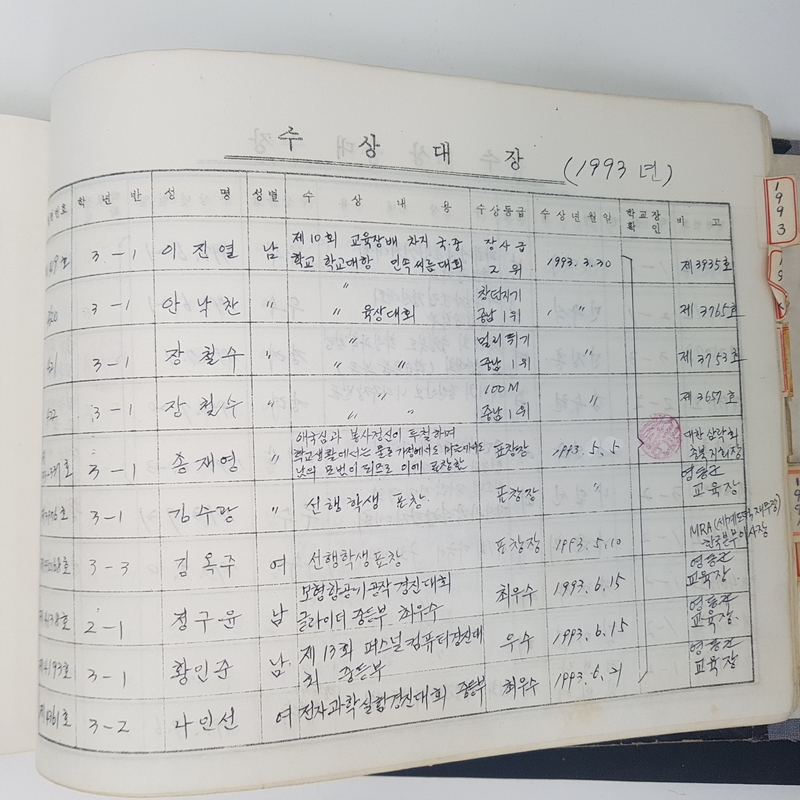 수 상 대 장 (1993 년)
번호 학 년 반 성 명 성별 수 상 내 용 수상등급 수 상 년 월 일 학교장 확인 비 고
3-1 이진열 남 제10회 교육장배 차지 국.중 장사급 1993.3.30 제3935호
학교 학교대항 민속씨름대회 2위
3-1 안낙찬 〃 〃 육상대회 창던지기 중남 1위 〃 〃 제3765호
3-1 장철수 〃 〃 〃 멀리뛰기 중남 1위 〃 제3753호
3-1 장철수 〃 〃 〃 100M 중남 1위 〃 제3657호
3-1 송재영 〃 애국심과 봉사정신이 투철하며 표창장 1993.5.5 대한산악회
학교생활에서는 물론 가정에서도 충북지회장
모범이 되므로 이에 표창함
3-1 김수광 〃 선행학생 표창 표창장 영동군 교육장
3-3 김옥주 여 선행학생표창 표창장 1993.5.10 MRA
2-1 정구윤 남 모형항공기공작경진대회 최우수 1993.6.15 영동군 교육장
글라이더 중등부 최우수
3-1 황인준 남 제13회 퍼스널컴퓨터경진대 우수 1993.6.15 영동군 교육장
회 중등부
3-2 나인선 여 전자과학실험경진대회 중등부 최우수 1993.6.21 영동군 교육장
1993